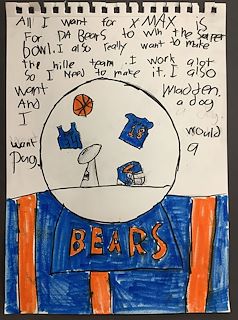 All I want for xMAX is
For DA BearS to win the Supper
bowl. I also really want to make
the hille team. I work alot
so I Need to make it. I also
want Madden,
And a dog
I would
want a
Pug.
BEARS